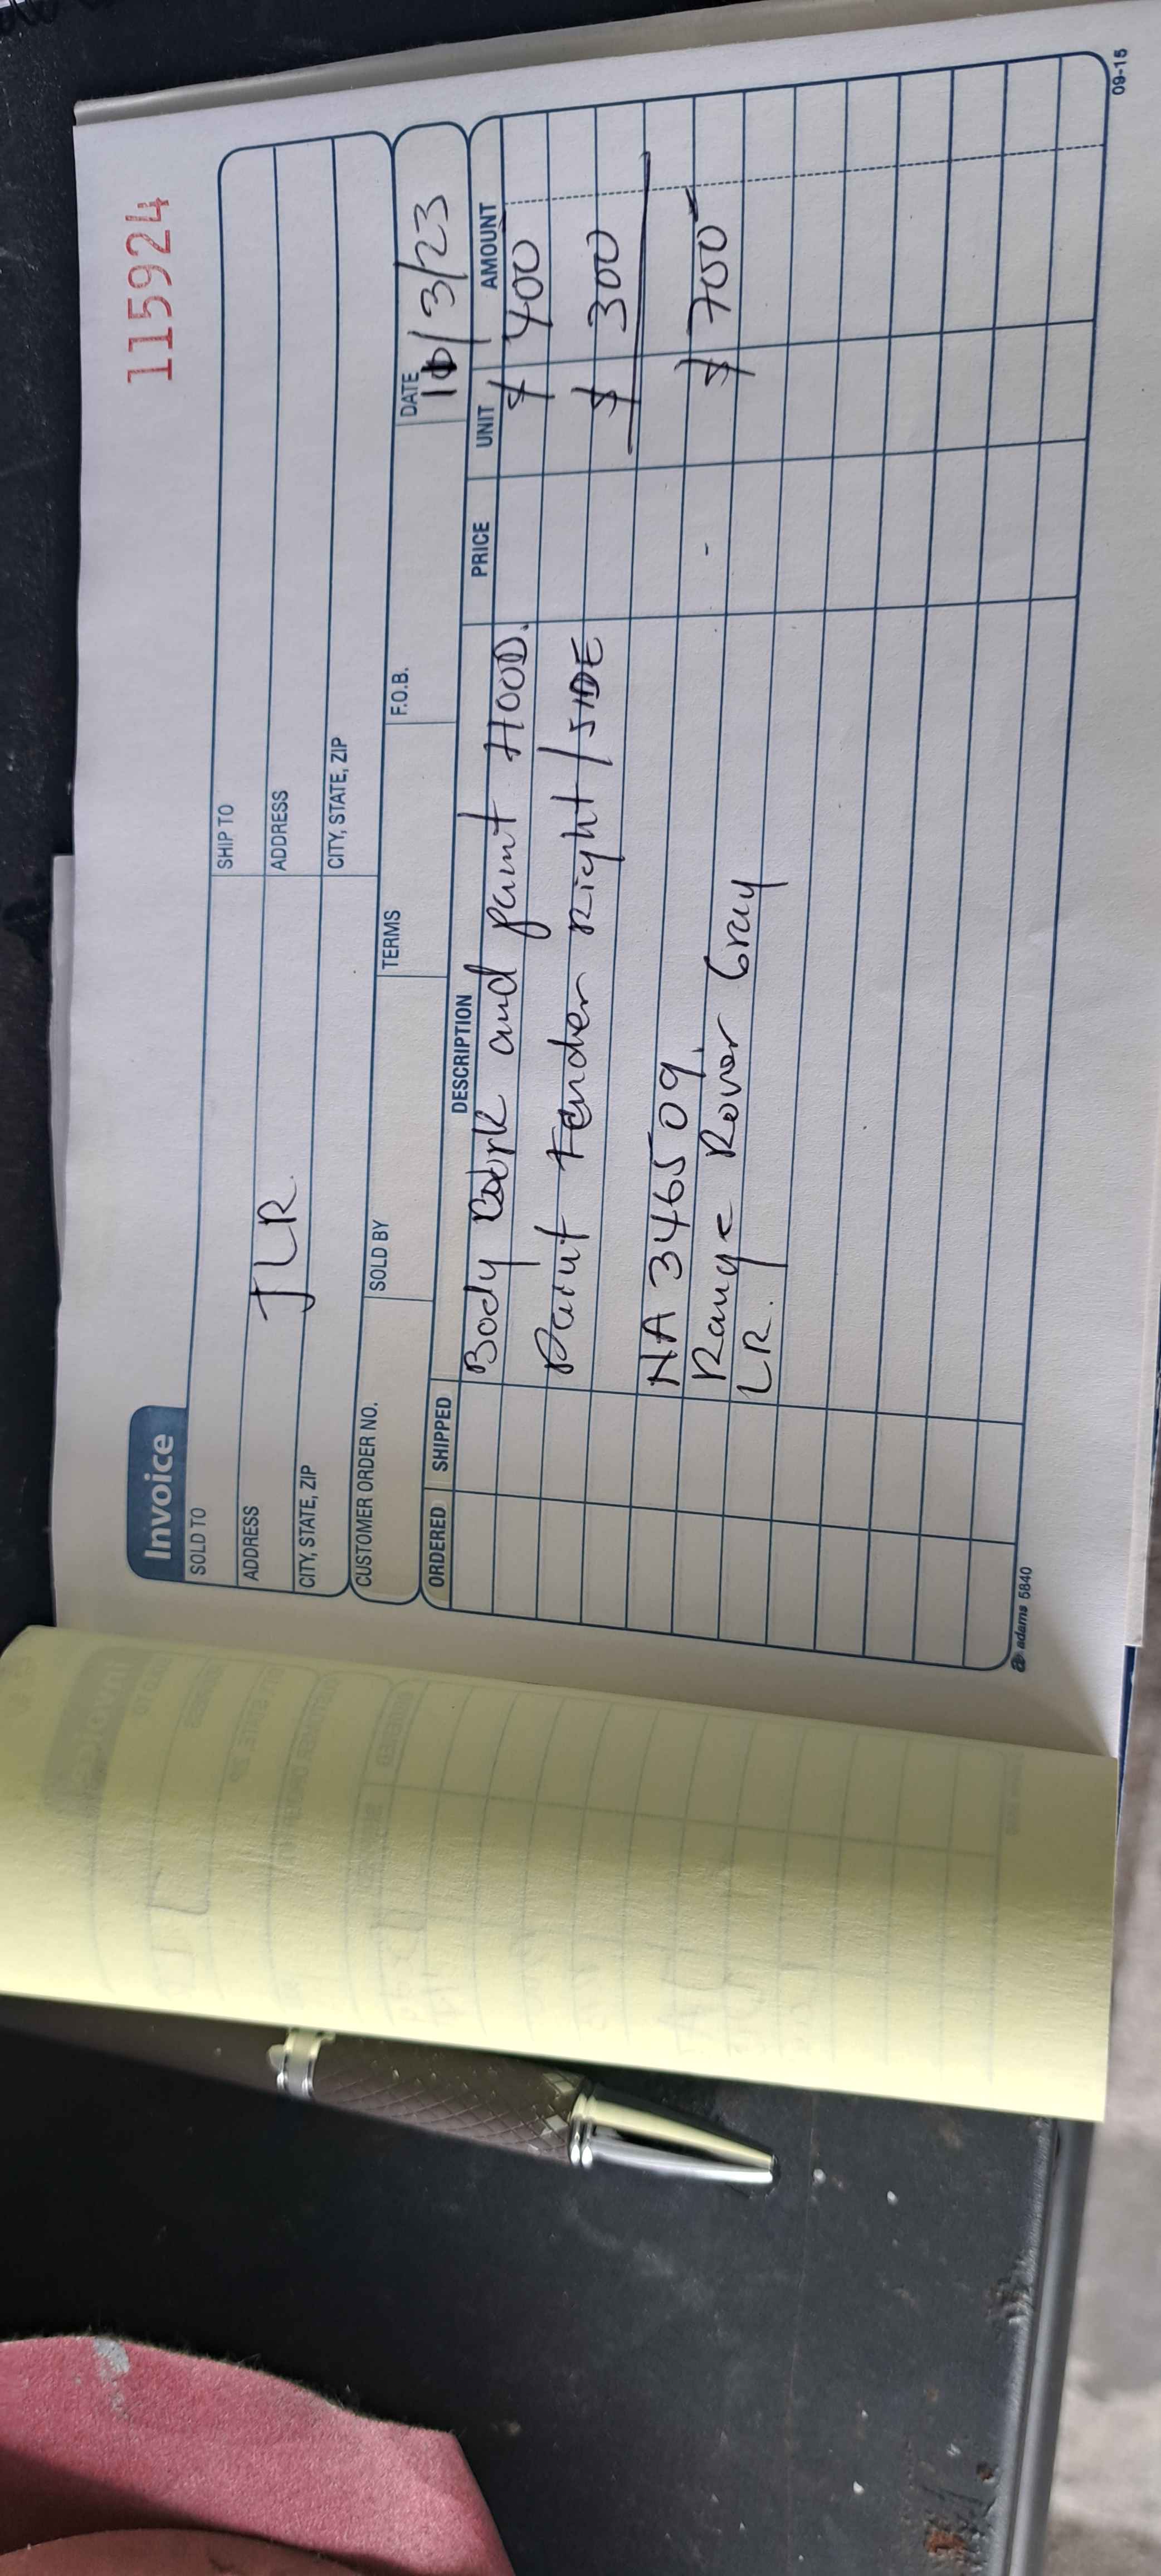 115924
Invoice
SOLD TO
SHIP TO
ADDRESS
JLR.
ADDRESS
CITY, STATE, ZIP
CITY, STATE, ZIP
CUSTOMER ORDER NO.
SOLD BY
TERMS
F.O.B.
DATE
/3/23
ORDERED SHIPPED DESCRIPTION PRICE UNIT AMOUNT
Body work and paint HOOD. $ 400
Paint Fender Right/SIDE $ 300
NA 346509.
Range Rover Gray $ 700
LR.
adams 5840
09-15